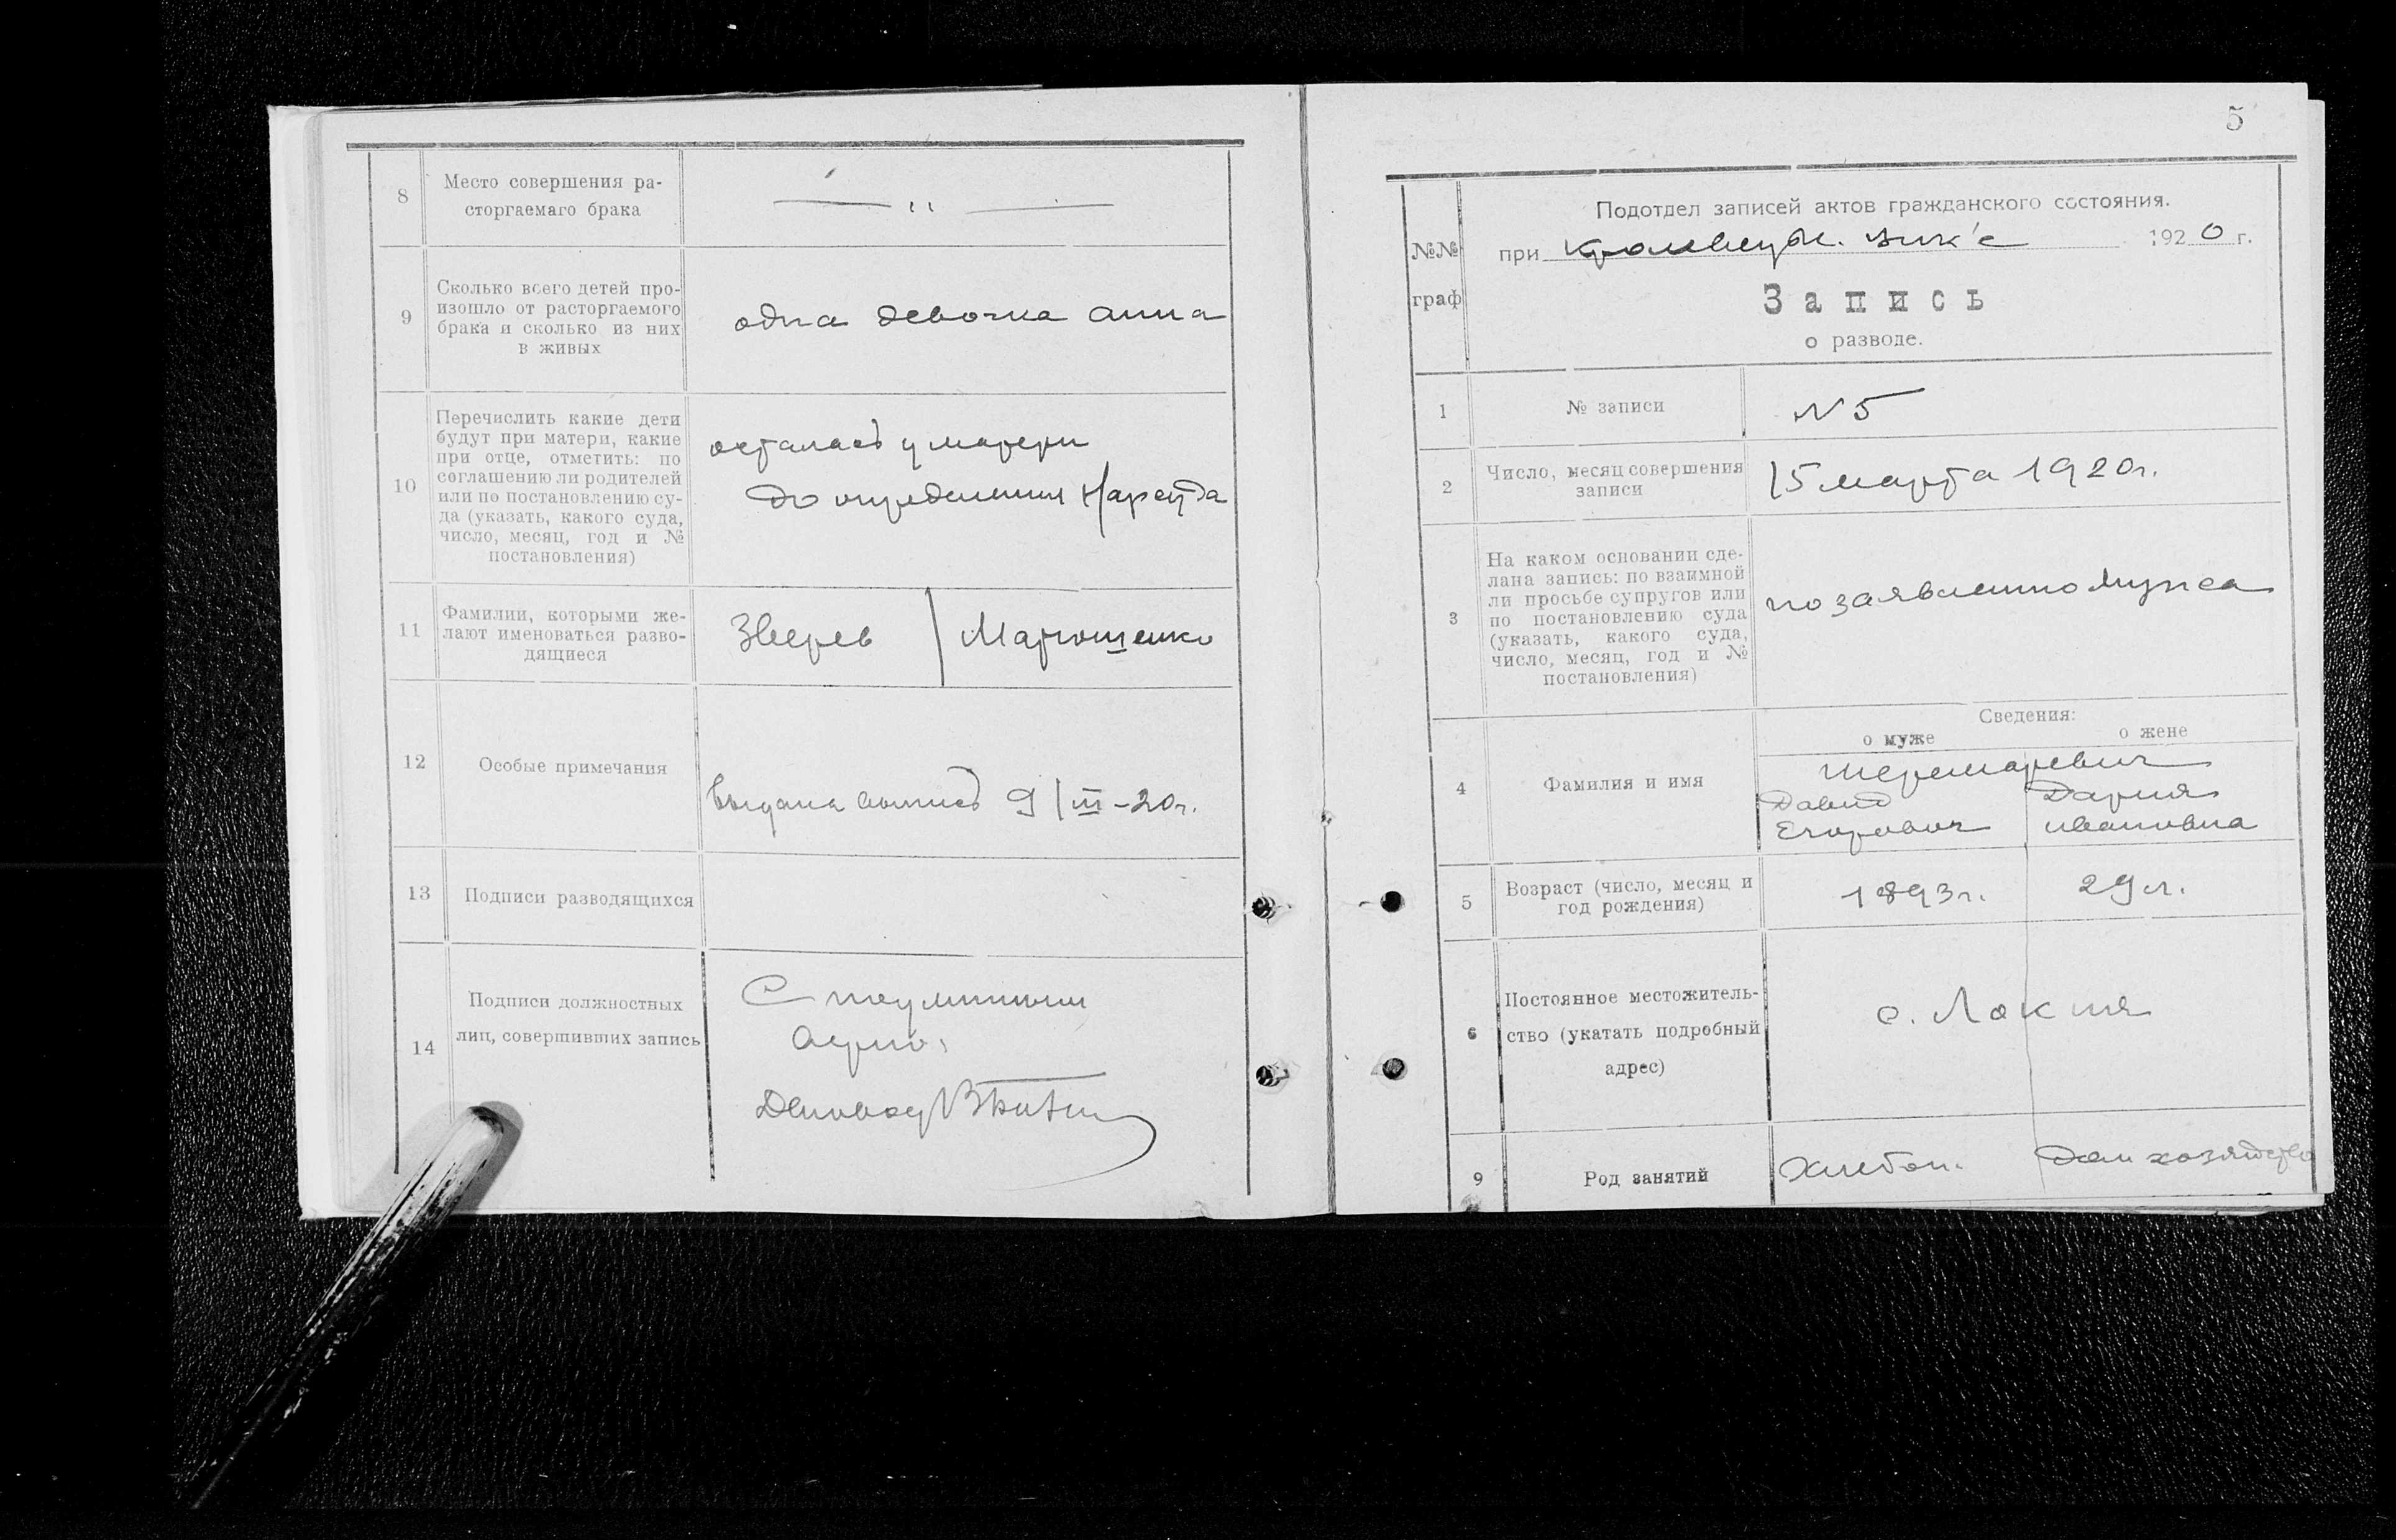 8
Место совершения ра-
сторгаемаго брака
— " —
9
Сколько всего детей про-
изошло от расторгаемого
брака и сколько из них
в живых
одна девочка анна
10
Перечислить какие дети
будут при матери, какие
при отце, отметить: по
соглашению ли родителей
или по постановлению су-
да (указать, какого суда,
число, месяц, год и №
постановления)
осталась у матери
до определения Нарсуда
11
Фамилии, которыми же-
лают именоваться разво-
дящиеся
Зверев Марющенко
12
Особые примечания
Выдана выпись 9/III-20г.
13
Подписи разводящихся
14
Подписи должностных
лиц, совершивших запись
С подлинным
верно:
5
№№
граф
Подотдел записей актов гражданского состояния.
при Кролевецк. 1920 г.
Запись
о разводе.
1
№ записи
N 5
2
Число, месяц совершения
записи
15 марта 1920г.
3
На каком основании сде-
лана запись: по взаимной
ли просьбе супругов или
по постановлению суда
(указать, какого суда,
число, месяц, год и №
постановления)
по заявлению мужа
Сведения:
о муже о жене
4
Фамилия и имя
Шеремаревич
Давид Дария
Егорович ивановна
5
Возраст (число, месяц и
год рождения)
1893г. 29 л.
6
Постоянное местожитель-
ство (укатать подробный
адрес)
с. Локня
9
Род занятий
Хлебоп. Дом хозяйство